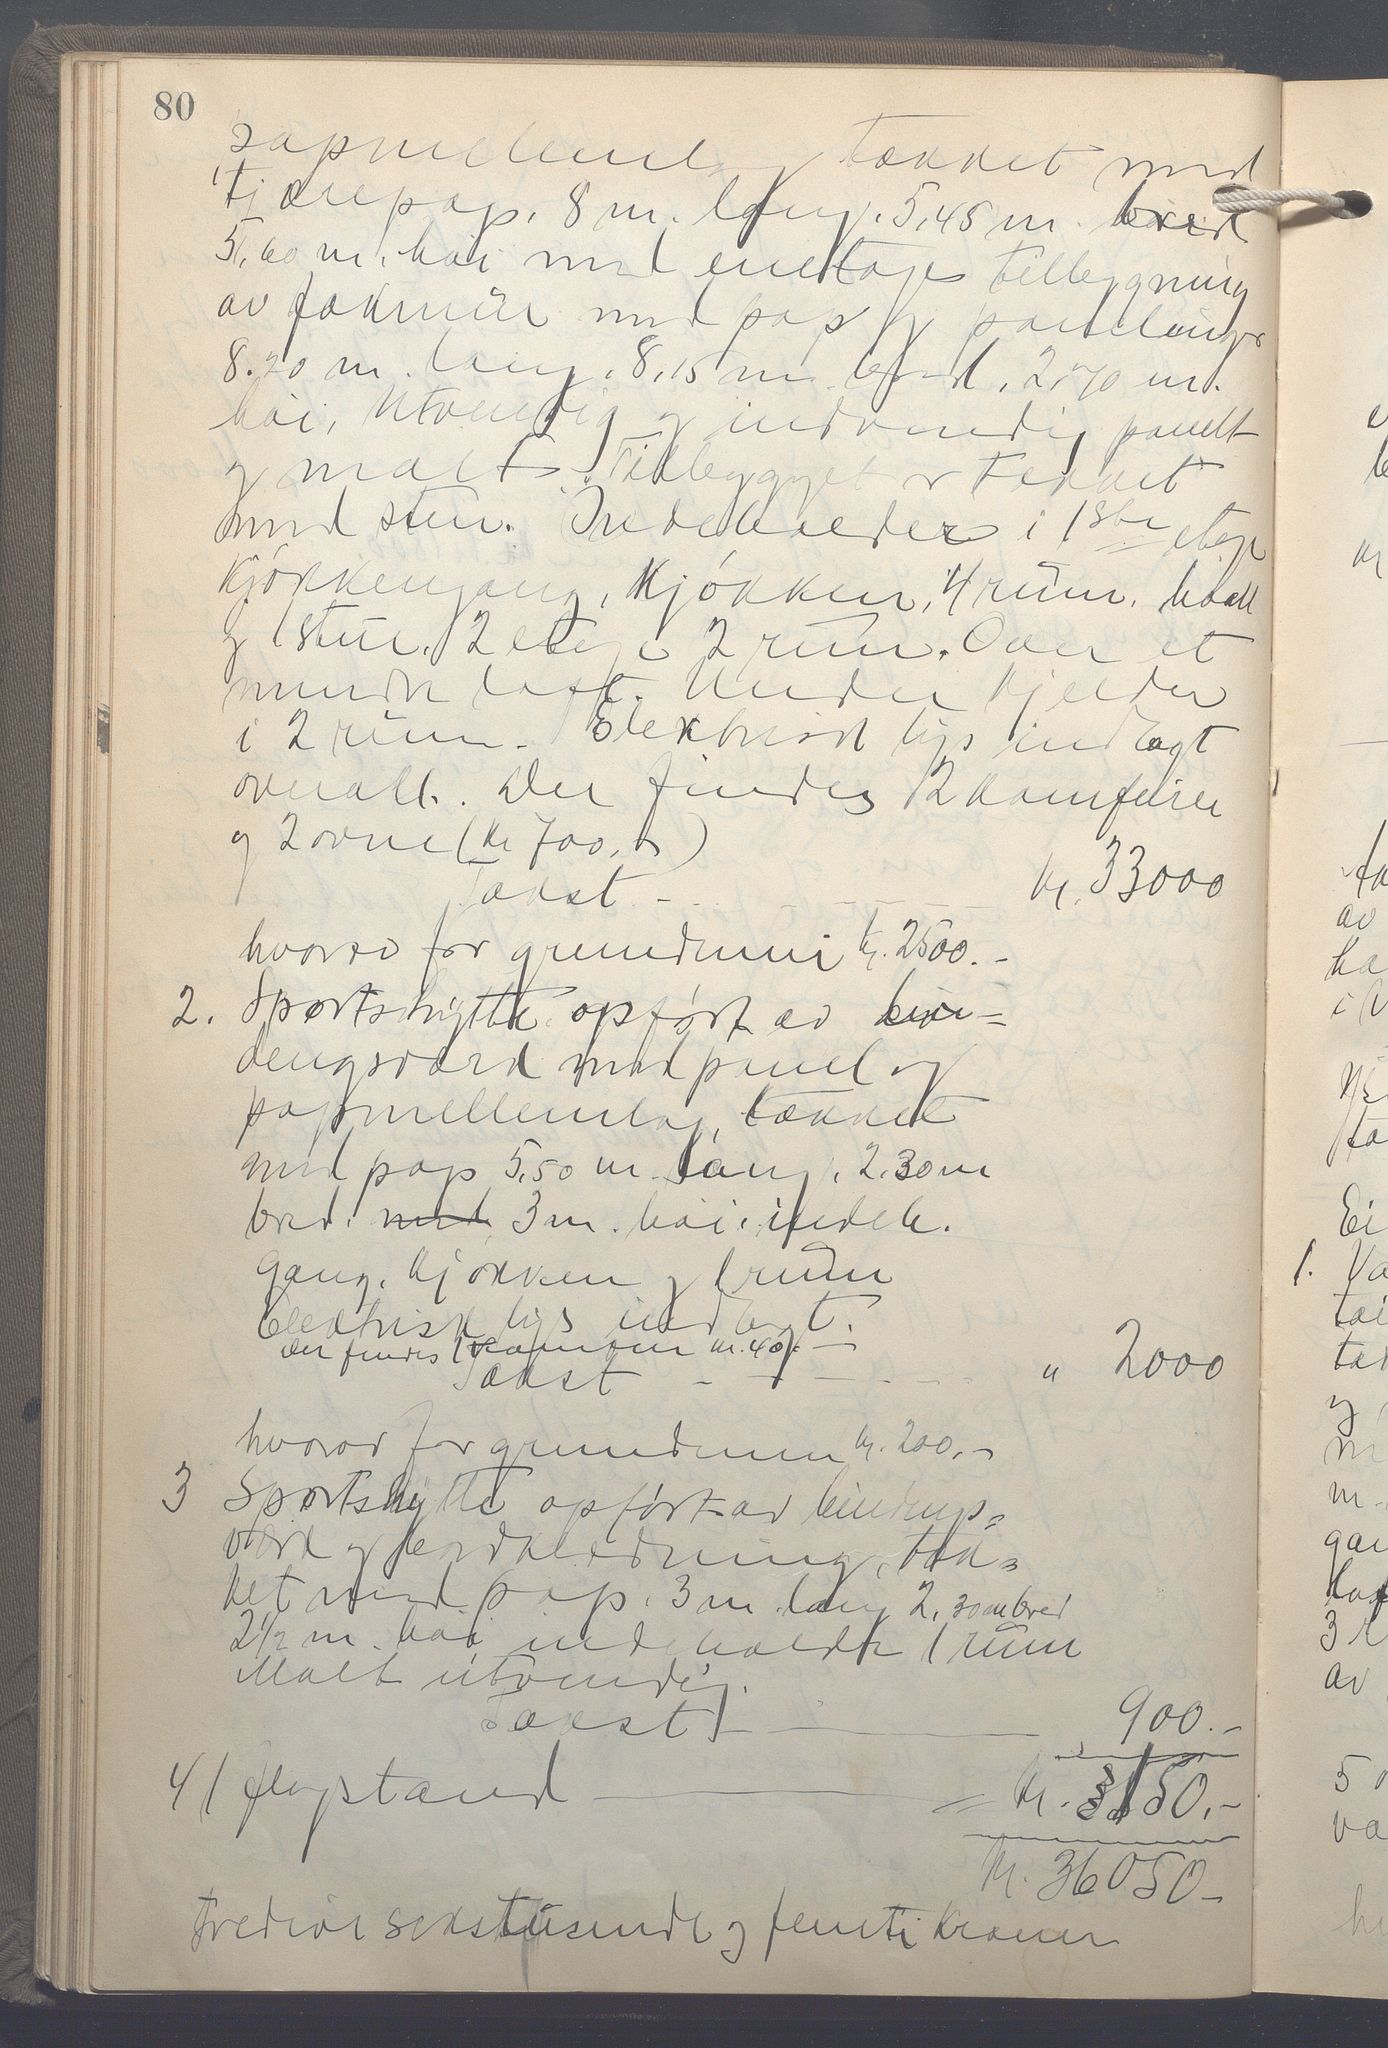 80
papmellemlag tækket med
tjærepap. 8 m. lang. 5,45 m. bred
5,60 m. høi med enetages tilbygning
av fakmur med pap og panelinger
8.20 m. lang, 8,15 m. bred, 2,70 m.
høi. Utvendig og indvendig panelt
og malt. Tilbygget er tækket
med sten. Indeholder i 1ste etage
kjøkkengang, kjøkken, 4 rum, hall
og 1 stue. 2 etage 2 rum. Over et
mindre loft. Under kjelder
i 2 rum. Elektrisk lys indlagt
overalt. Der findes 2 kaminer
og 2 ovne (kr 700,-)
Takst - . . - - - - kr. 33000
hvorav for grundmur kr. 2500.-
2. Sportshytte opført av bin-
dingsværk med panel og
papmellemlag, tækket
med pap 5,50 m. lang, 2,30 m
bred. med 3 m. høi, indeh.
gang, kjøkken og 1 rum
Elektrisk lys indlagt.
Der findes 1 kr. 40,-
Takst - - - - - " 2000
hvorav for grundmur kr. 200.-
3 Sportshytte opført av bindings-
værk og bordklædning, tæk-
ket med pap. 3 m. lang 2,30 m bred
2½ m. høi indeholder 1 rum
Malt utvendig.
Takst - 900.-
4 1 flagstand - = kr. 150.-
kr. 36050-
Tredive sekstusinde og femti kroner